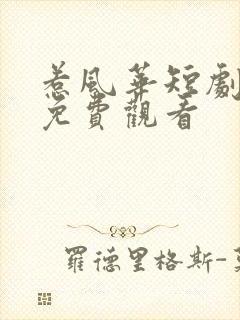 惹風華短劇
免費觀看
羅德里格斯-莫